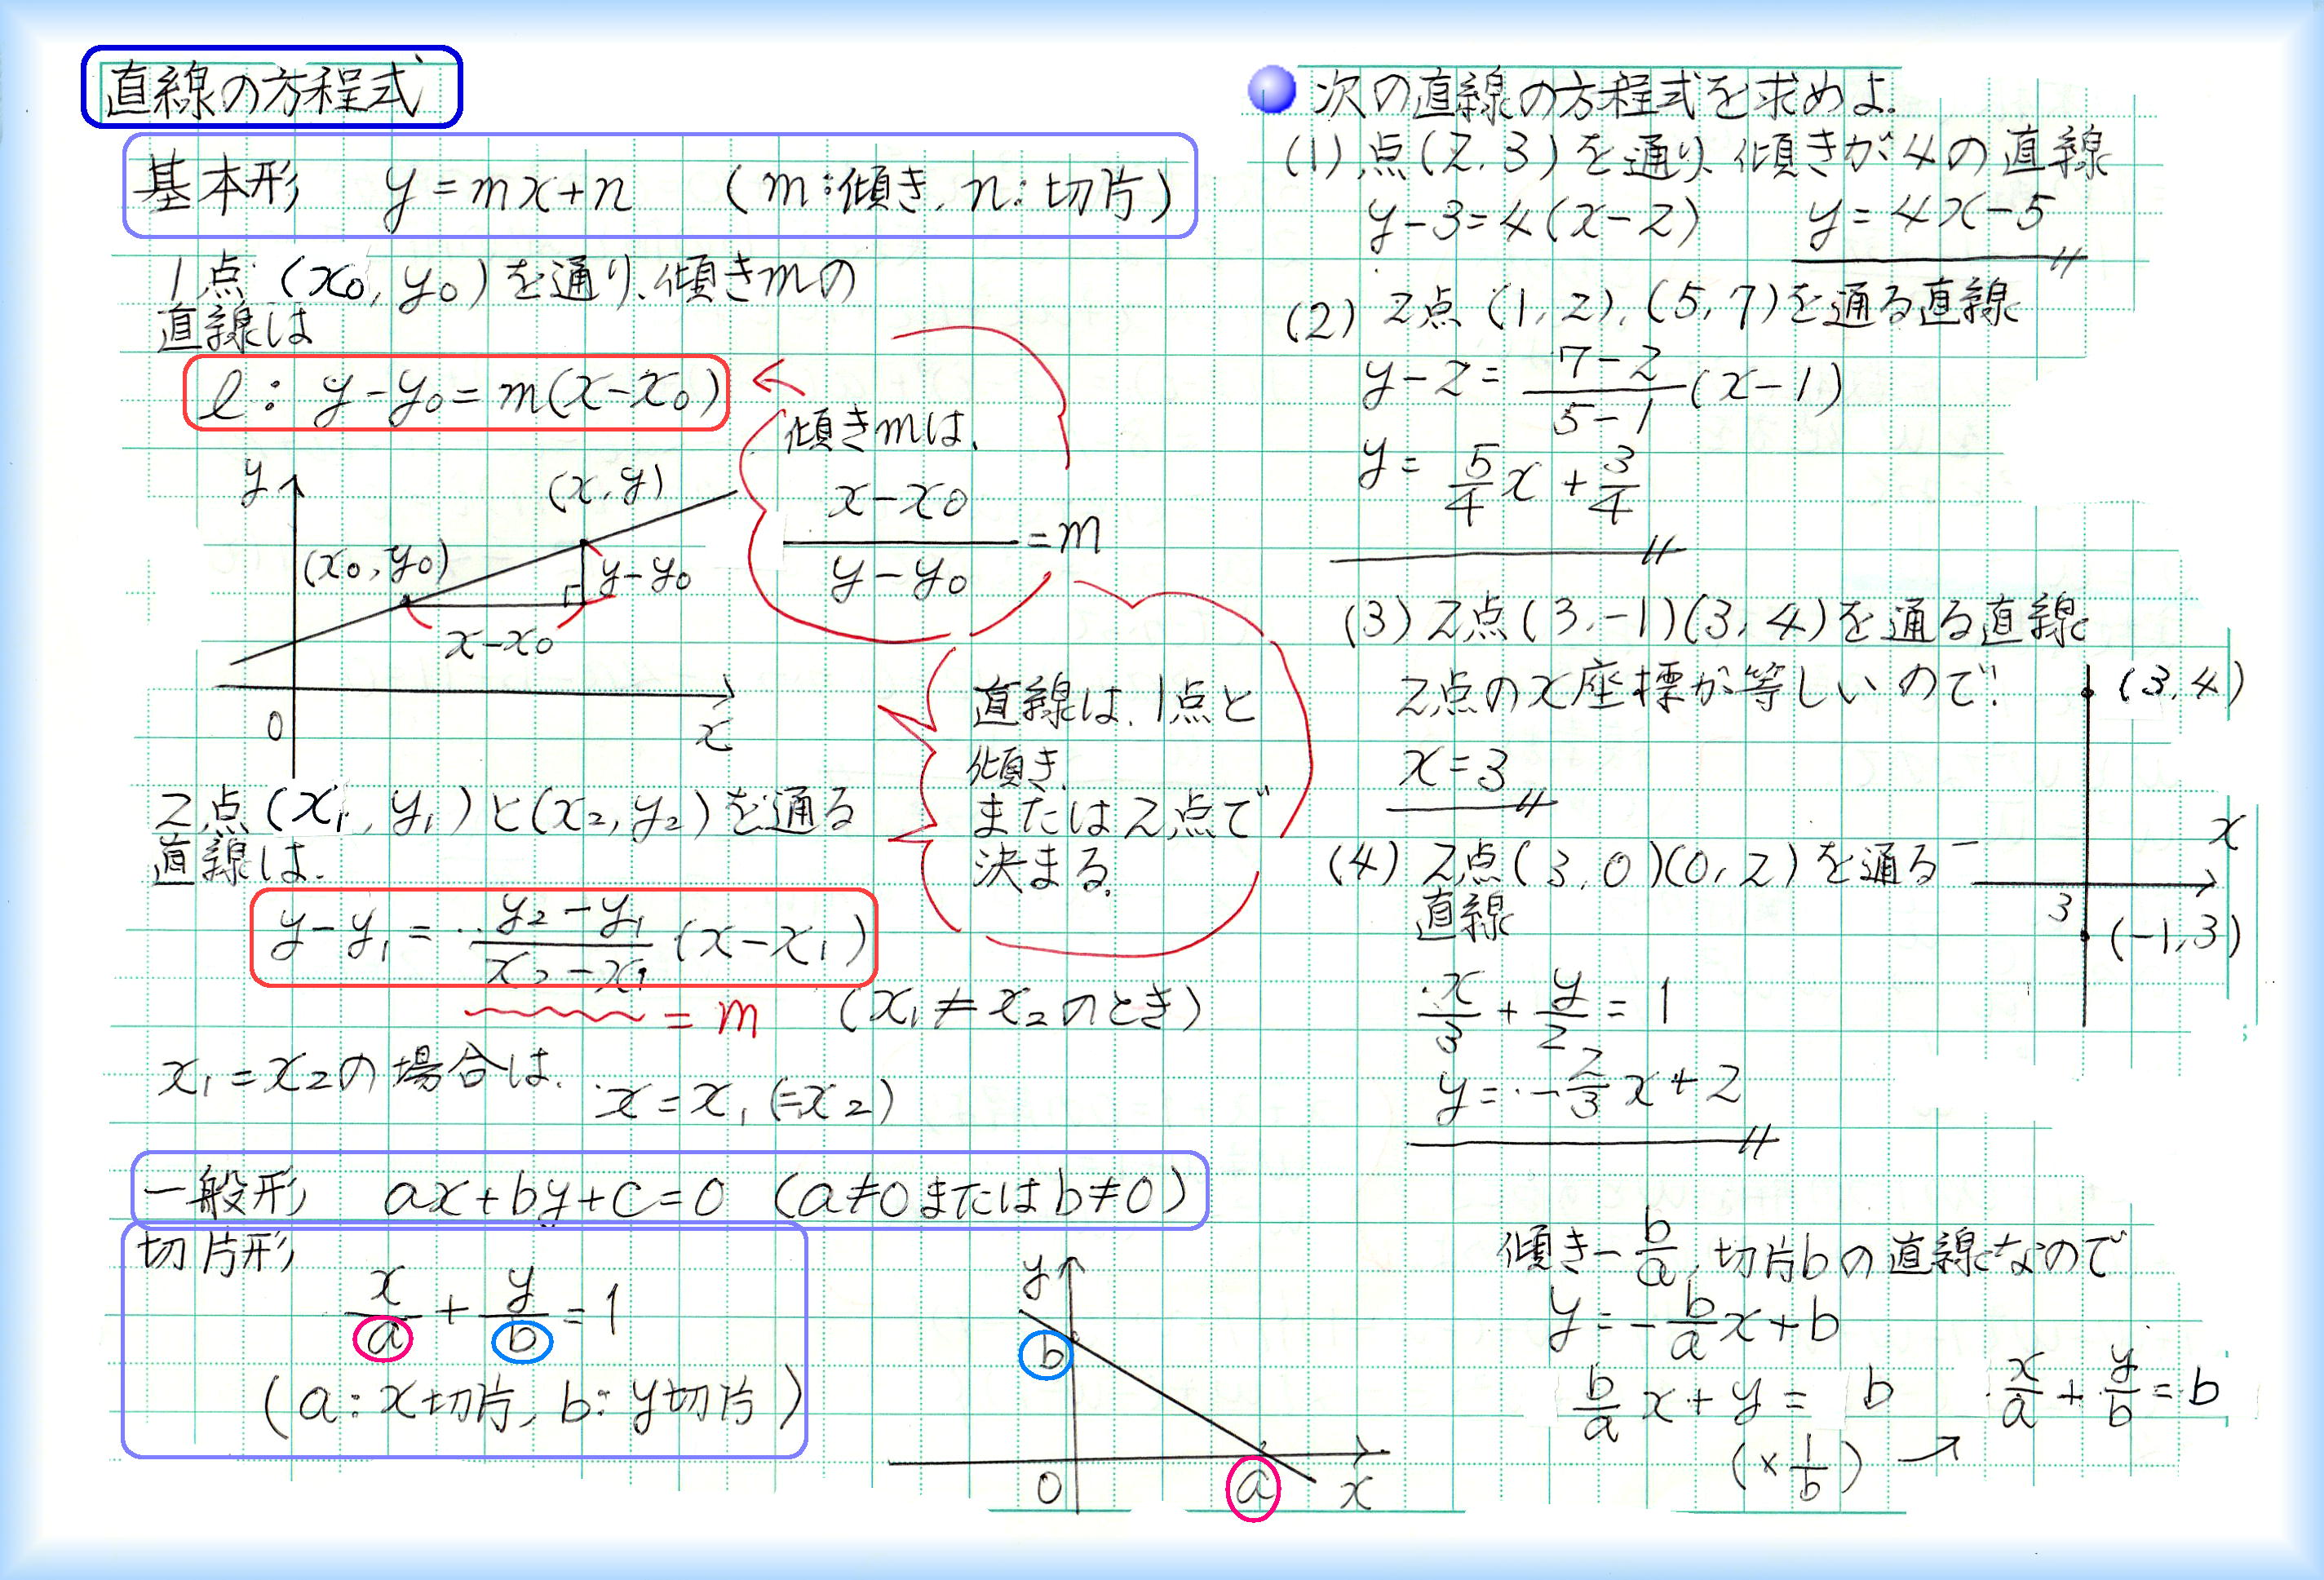 直線の方程式
基本形 y=mx+n (m:傾き, n:切片)
1点 (x₀, y₀)を通り、傾きmの
直線は
l: y-y₀=m(x-x₀)
傾きmは、
(x-x₀)/(y-y₀)=m
y
(x,y)
(x₀,y₀)
y-y₀
x-x₀
0
x
直線は、1点と
傾き、
または2点で
決まる。
2点(x₁, y₁)と(x₂, y₂)を通る
直線は、
y-y₁=(y₂-y₁)/(x₂-x₁)(x-x₁)
=m (x₁≠x₂のとき)
x₁=x₂の場合は、x=x₁(=x₂)
一般形 ax+by+c=0 (a≠0またはb≠0)
切片形
x/a+y/b=1
(a:x切片, b:y切片)
y
b
0
a
x
次の直線の方程式を求めよ。
(1) 点(2,3)を通り、傾きが4の直線
y-3=4(x-2) y=4x-5
(2) 2点(1,2),(5,7)を通る直線
y-2=(7-2)/(5-1)(x-1)
y=5/4x+3/4
(3) 2点(3,-1)(3,4)を通る直線
2点のx座標が等しいので、
x=3
(3,4)
x
3
(-1,3)
(4) 2点(3,0)(0,2)を通る
直線
x/3+y/2=1
y=-2/3x+2
傾き-b/a,切片bの直線なので
y=-b/ax+b
b/ax+y=b x/a+y/b=b
(×1/b)↗